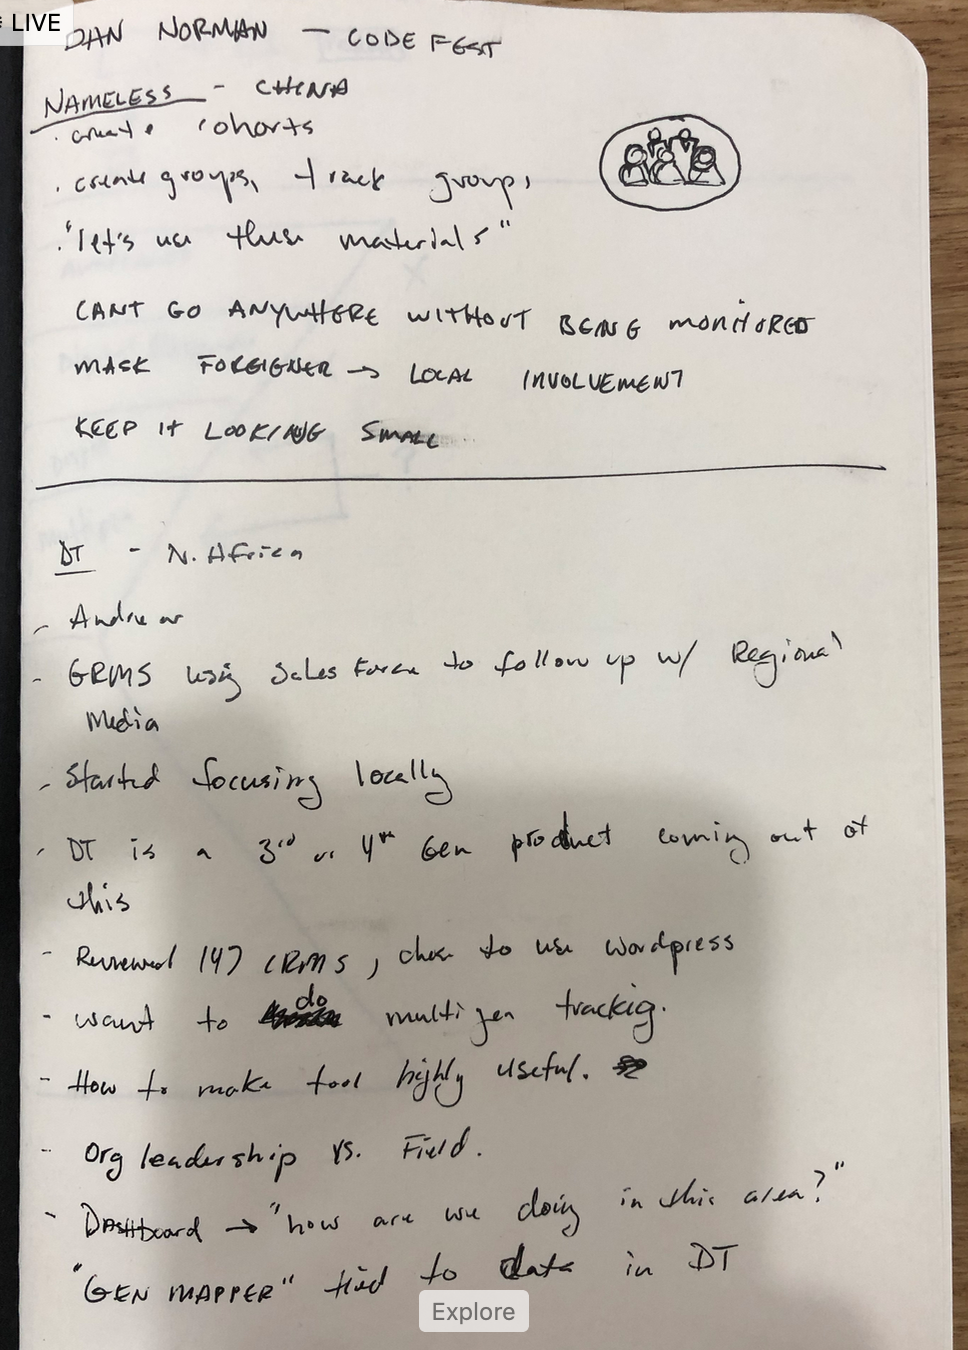 LIVE
DAN NORMAN — CODE FEST
NAMELESS - CHINA
. create cohorts
. create groups, track groups
. "let's use these materials"
CANT GO ANYWHERE WITHOUT BEING MONITORED
MASK FOREIGNER → LOCAL INVOLVEMENT
KEEP IT LOOKING SMALL
DT - N. Africa
- Andrew
- GRMS using Sales Force to follow up w/ Regional
Media
- Started focusing locally
- DT is a 3rd or 4th Gen product coming out of
this
- Reviewed 147 CRMS, chose to use wordpress
- want to do multi gen trackig.
- How to make tool highly useful.
- Org leadership vs. Field.
- Dashboard → "how are we doing in this area?"
"GEN MAPPER" tied to data in DT
Explore